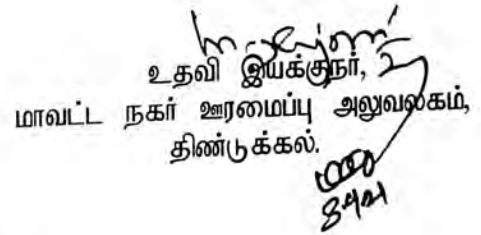 உதவி இயக்குநர்,
மாவட்ட நகர் ஊரமைப்பு அலுவலகம்,
திண்டுக்கல்.